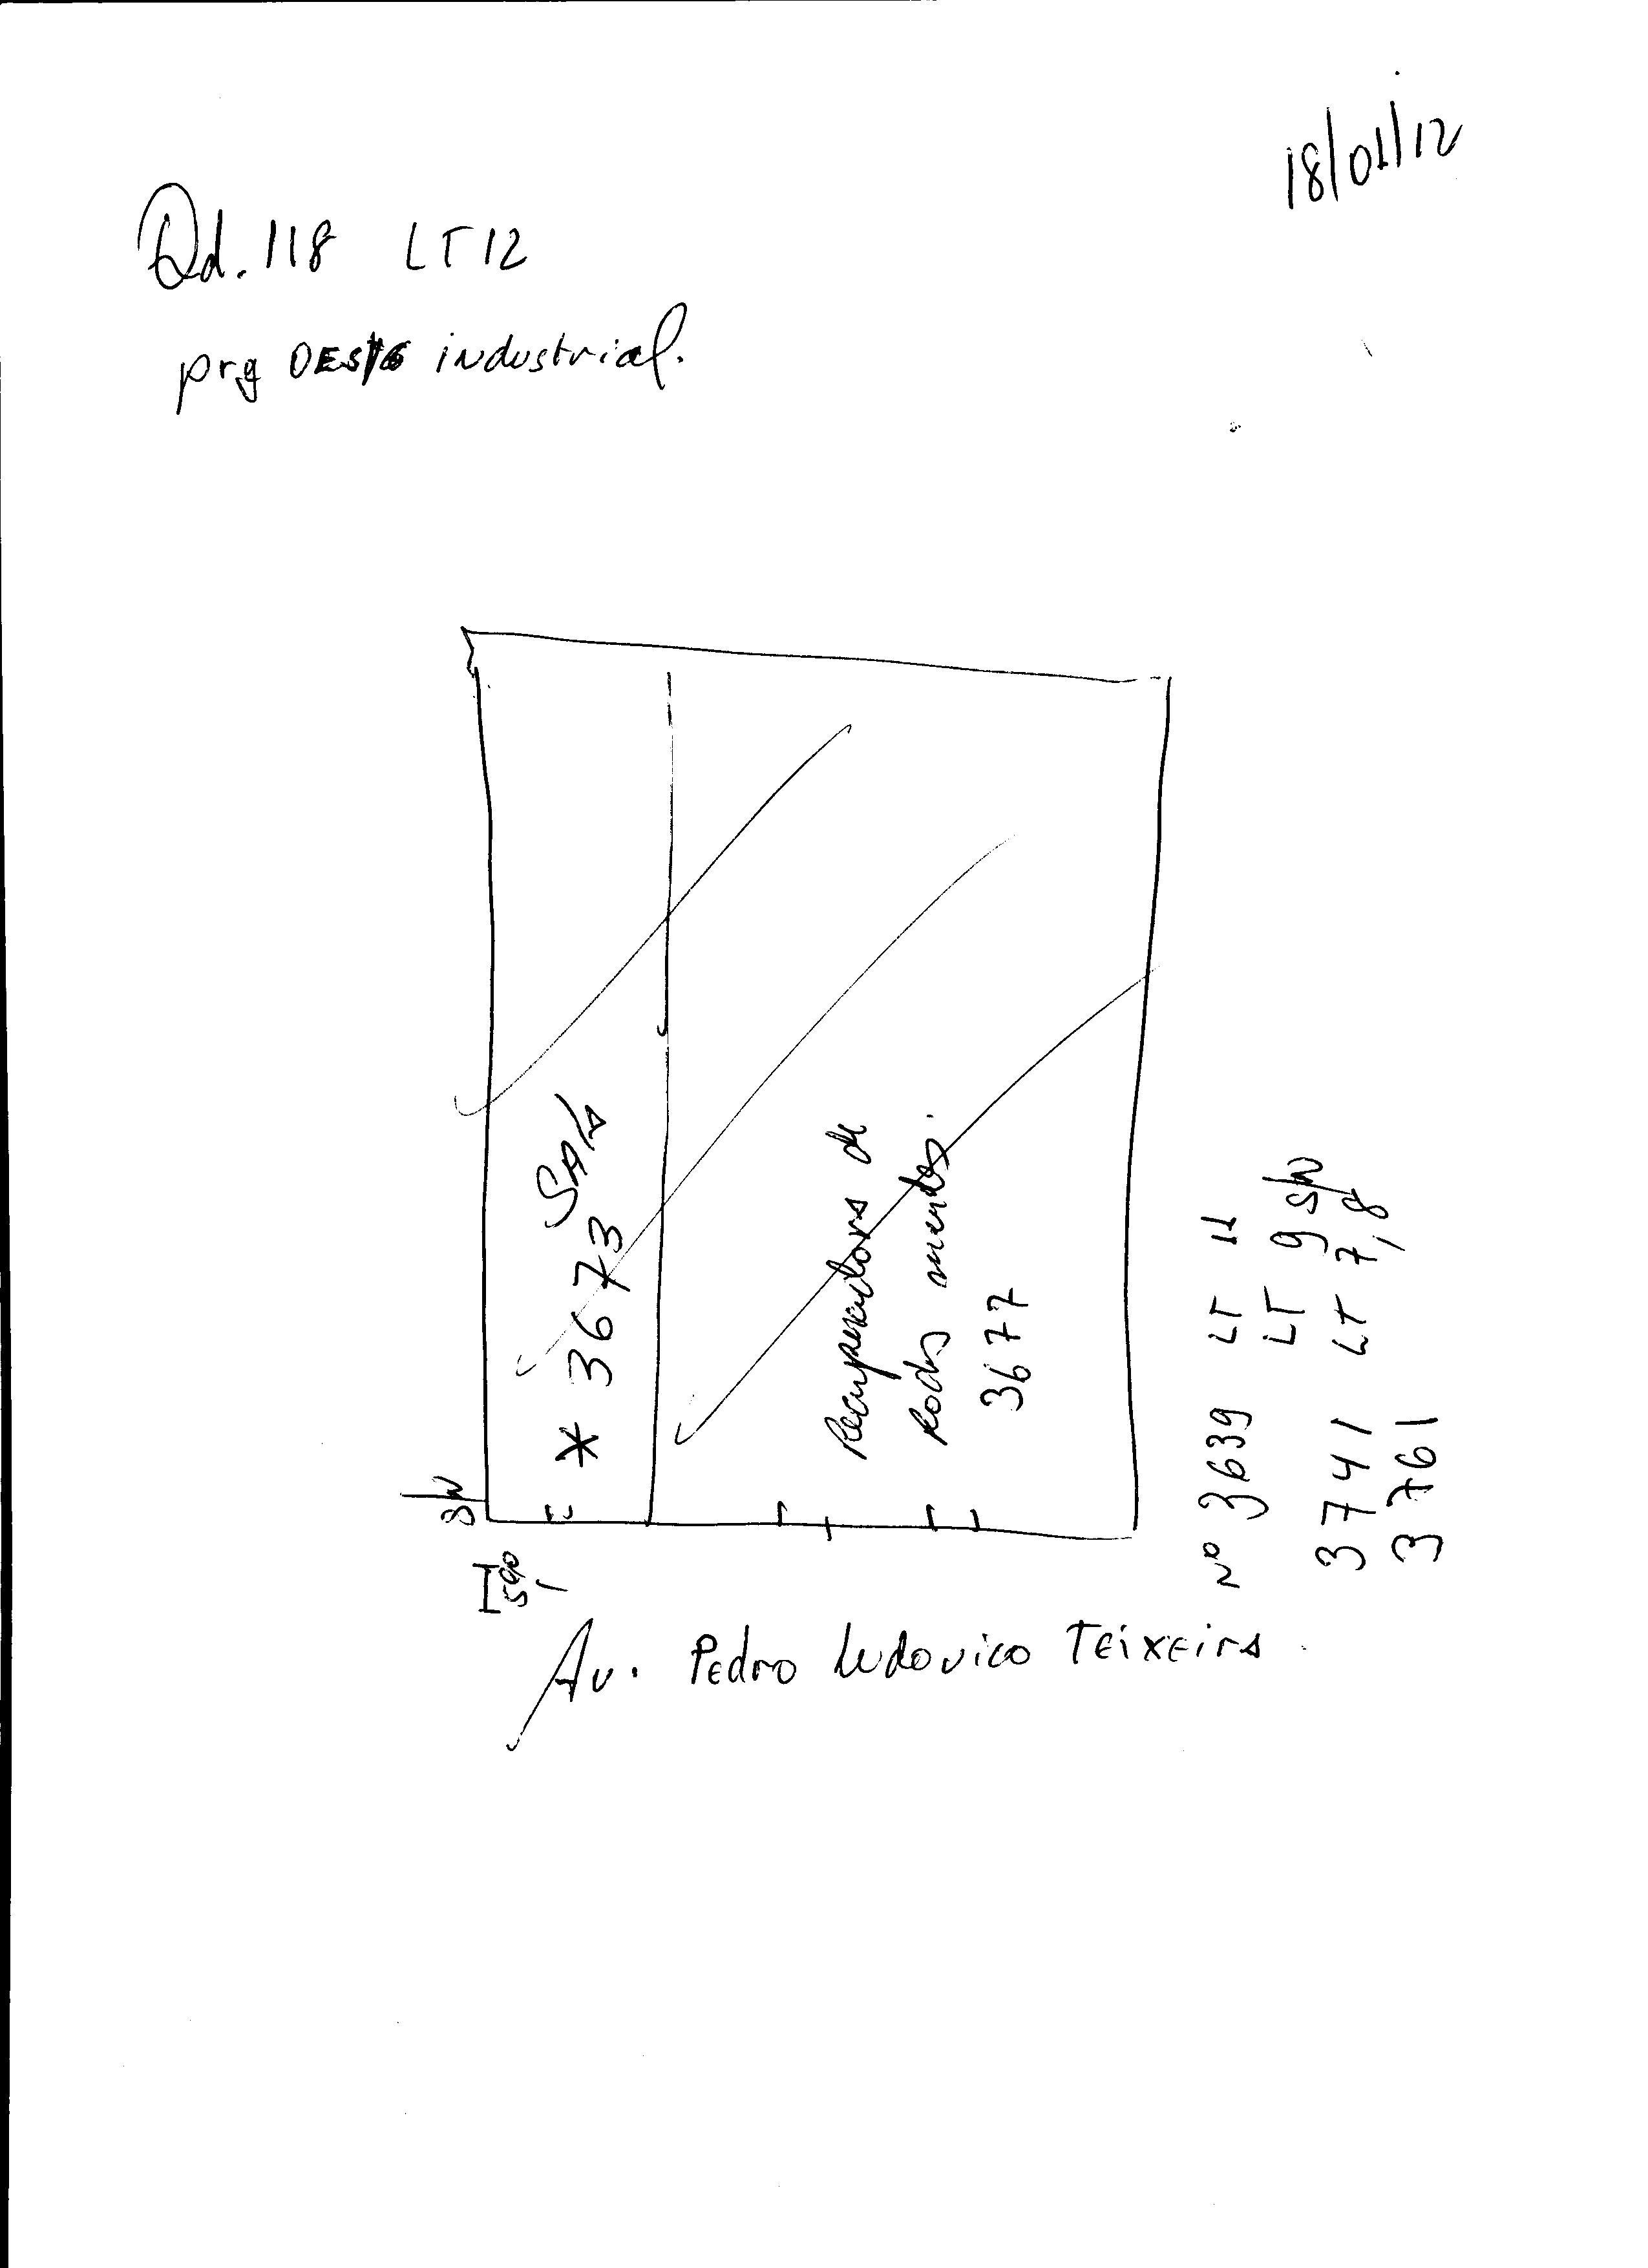 18/01/12
Qd. 118 LT 12
prq OESTE industrial.
SALA
* 3673
Recuperadora de
Rodas mendes.
3677
Nº 3639 LT 11
LT 9 S/N
3741 LT 7,8
3761
S/N
Av. Pedro Ludovico TEixeirA